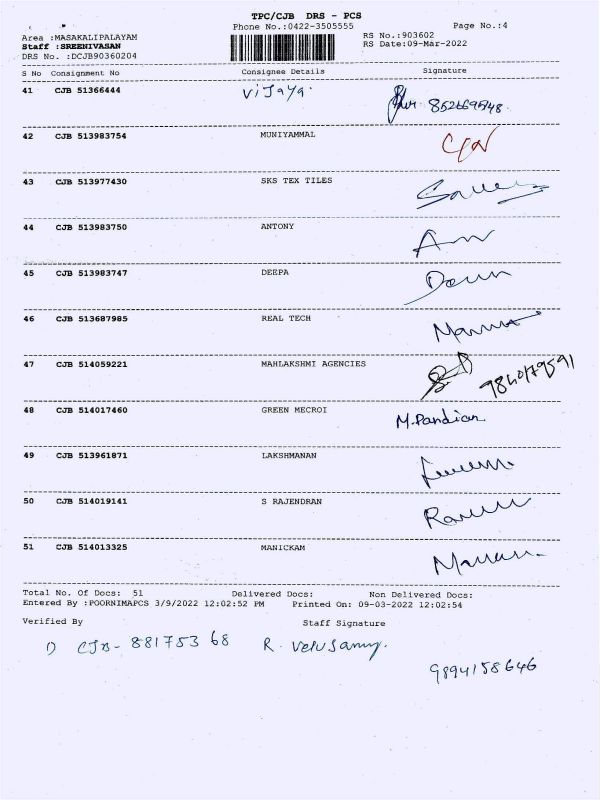 TPC/CJB DRS - PCS
Phone No.:0422-3505555 Page No.:4
Area :MASAKALIPALAYAM RS No.:903602
Staff :SREENIVASAN RS Date:09-Mar-2022
DRS No. :DCJB90360204
S No Consignment No Consignee Details Signature
41 CJB 51366444 Vijaya.
42 CJB 513983754 MUNIYAMMAL
43 CJB 513977430 SKS TEX TILES
44 CJB 513983750 ANTONY
45 CJB 513983747 DEEPA
46 CJB 513687985 REAL TECH
47 CJB 514059221 MAHLAKSHMI AGENCIES 9840179591
48 CJB 514017460 GREEN MECROI M.Pandian
49 CJB 513961871 LAKSHMANAN
50 CJB 514019141 S RAJENDRAN
51 CJB 514013325 MANICKAM
Total No. Of Docs: 51 Delivered Docs: Non Delivered Docs:
Entered By :POORNIMAPCS 3/9/2022 12:02:52 PM Printed On: 09-03-2022 12:02:54
Verified By Staff Signature
1) CJB- 88175368 R. Velusamy.
9894158646